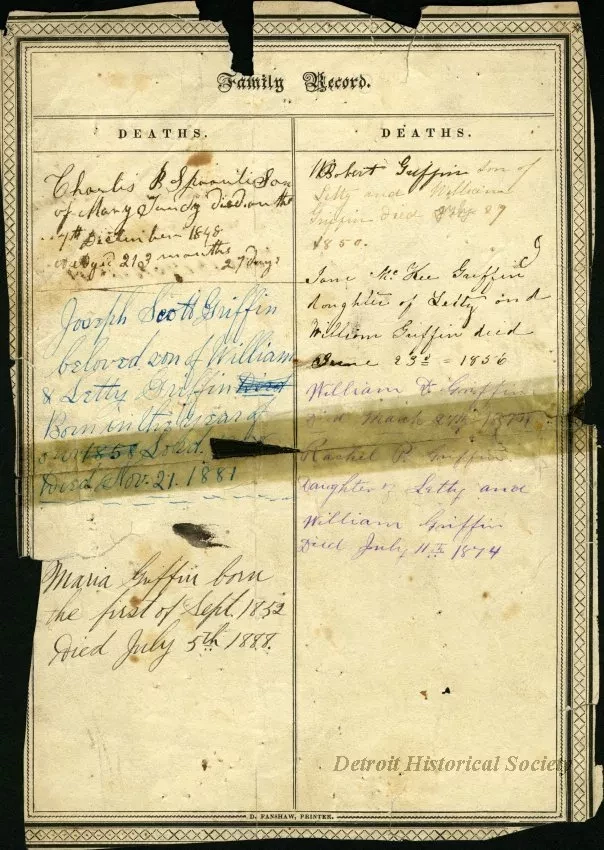 Family Record.
DEATHS.
Charlis B Son
of Mary Tandy died on the
7th December 1848
aged 21 3 months
27 days
Joseph Scott Griffin
beloved son of William
& Letty Griffin Died
Born in the year of
our 1858 Lord.
Died Nov. 21. 1881
Maria Griffin born
the first of Sept. 1852
Died July 5th 1888.
DEATHS.
Robert Griffin son of
Letty and William
Griffin Died 29
1850.
Jane Mc Kee Griffin
daughter of Letty and
William Griffin died
June 23d = 1856
William F. Griffin
Died March 27th
Rachel P. Griffin
daughter of Letty and
William Griffin
Died July 11th 1874
Detroit Historical Society
D. FANSHAW, PRINTER.